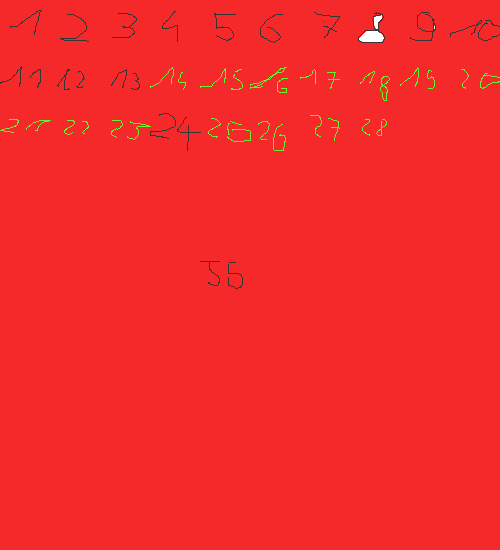 1 2 3 4 5 6 7 8 9 10
11 12 13 14 15 16 17 18 19 20
21 22 23 24 25 26 27 28
56